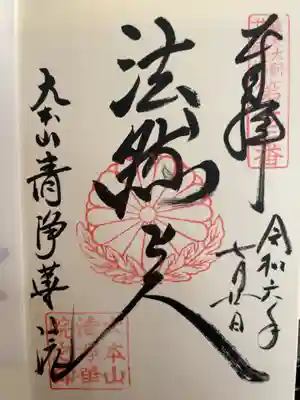 奉拝
令和六年
七月廿日
法然上人
大本山清浄華院
大本山
清浄華
院之印